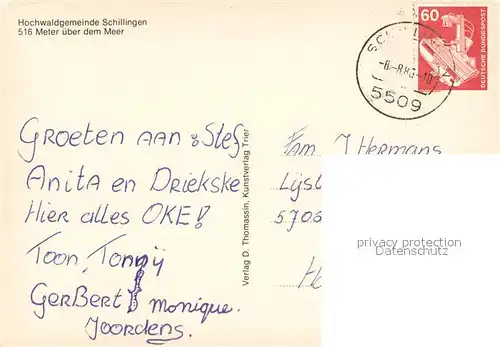 Hochwaldgemeinde Schillingen
516 Meter über dem Meer
60
DEUTSCHE BUNDESPOST
5509
GROETEN AAN & Stef
Anita en Driekske
Hier alles OKE!
Toon, Tonny
GerBert Monique.
Joordens.
Verlag D. Thomassin, Kunstverlag Trier
Fam J Hermans
Lijst
5706
He
privacy protection
Datenschutz